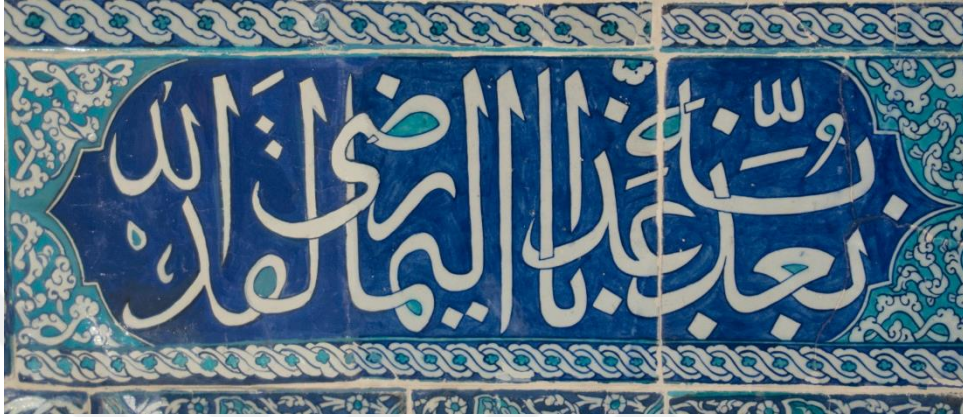 يعذبه عذابا اليما لقد رضى الله